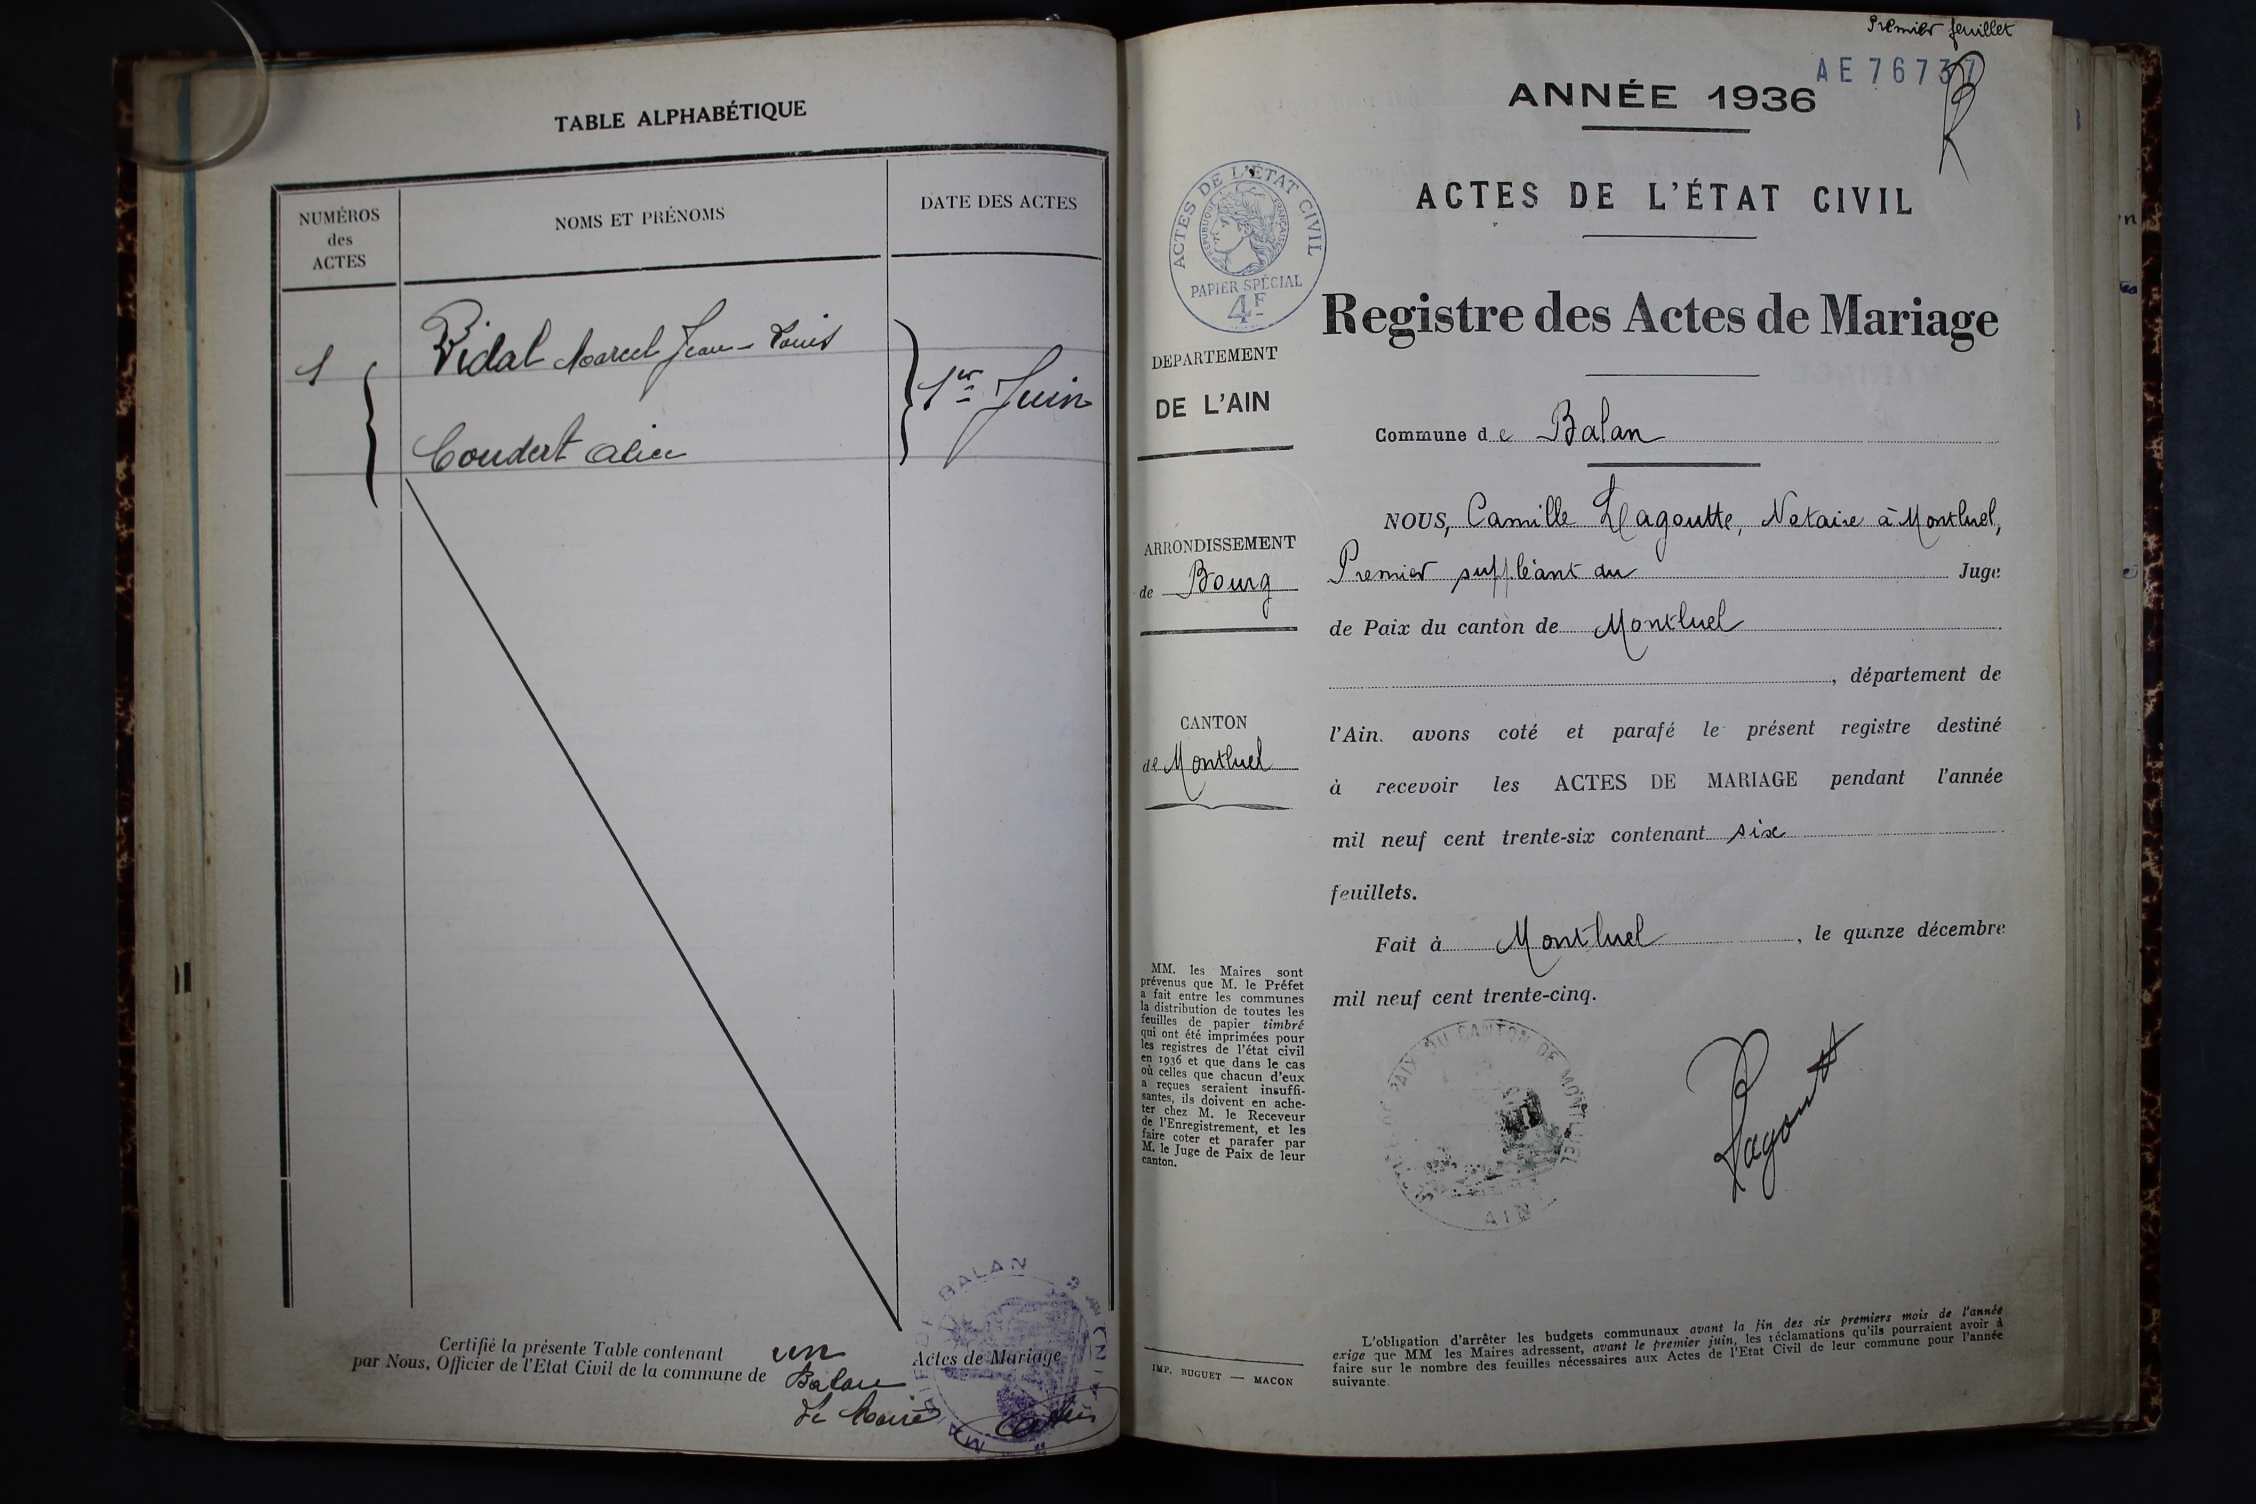 TABLE ALPHABÉTIQUE
NUMÉROS
des
ACTES
NOMS ET PRÉNOMS
DATE DES ACTES
1
Vidal Marcel Jean-Louis
Coudert Alice
1er Juin
Certifié la présente Table contenant un Actes de Mariage
par Nous, Officier de l'Etat Civil de la commune de Balan
Le Maire
MAIRIE DE BALAN
Premier feuillet
AE 76737
ANNÉE 1936
ACTES DE L'ÉTAT CIVIL
ACTES DE L'ÉTAT CIVIL
RÉPUBLIQUE FRANÇAISE
PAPIER SPÉCIAL
4F
Registre des Actes de Mariage
DEPARTEMENT
DE L'AIN
ARRONDISSEMENT
de Bourg
CANTON
de Montluel
MM. les Maires sont
prévenus que M. le Préfet
a fait entre les communes
la distribution de toutes les
feuilles de papier timbré
qui ont été imprimées pour
les registres de l'état civil
en 1936 et que dans le cas
où celles que chacun d'eux
a reçues seraient insuffi-
santes, ils doivent en ache-
ter chez M. le Receveur
de l'Enregistrement, et les
faire coter et parafer par
M. le Juge de Paix de leur
canton.
IMP. BUGUET — MACON
Commune de Balan
NOUS, Camille Lagoutte, Notaire à Montluel,
Premier suppléant du Juge
de Paix du canton de Montluel
, département de
l'Ain. avons coté et parafé le présent registre destiné
à recevoir les ACTES DE MARIAGE pendant l'année
mil neuf cent trente-six contenant six
feuillets.
Fait à Montluel, le quinze décembre
mil neuf cent trente-cinq.
PAIX DU CANTON DE MONTLUEL
AIN
Lagoutte
L'obligation d'arrêter les budgets communaux avant la fin des six premiers mois de l'année
exige que MM les Maires adressent, avant le premier juin, les réclamations qu'ils pourraient avoir à
faire sur le nombre des feuilles nécessaires aux Actes de l'Etat Civil de leur commune pour l'année
suivante.